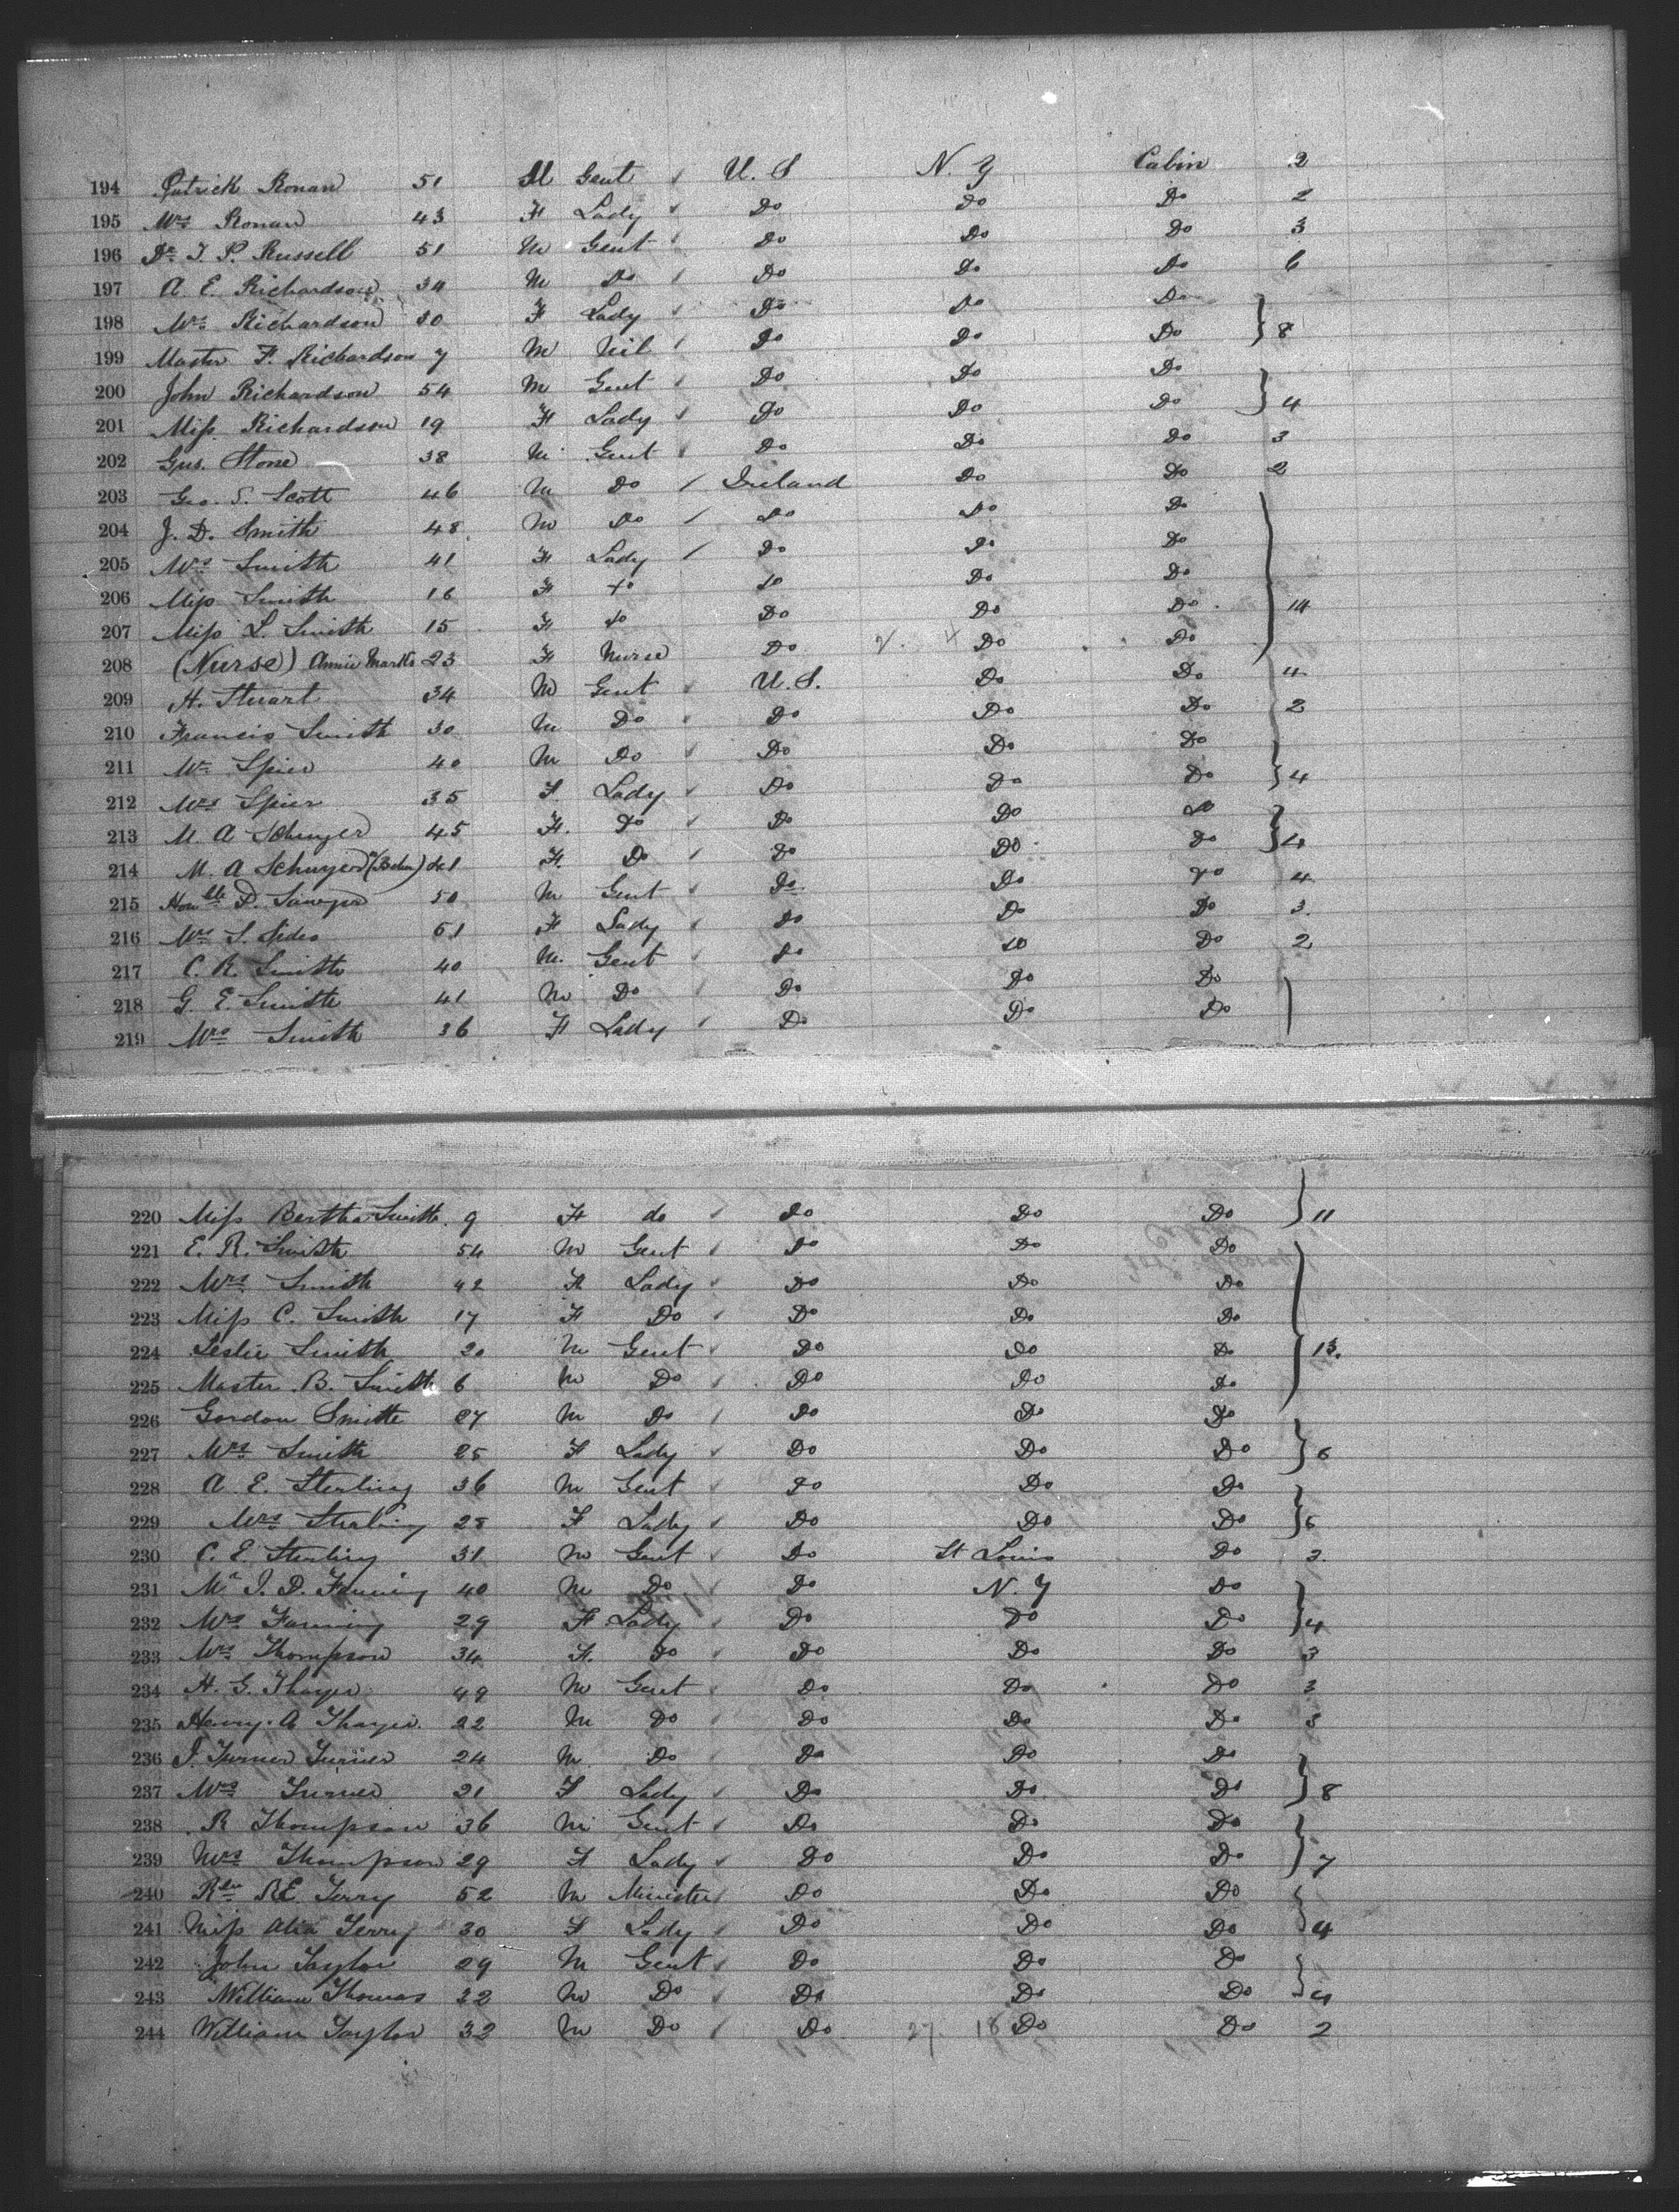 194 Patrick Ronan 51 M Gent U. S N. Y Cabin 2
195 Mrs Ronan 43 F Lady Do Do Do 2
196 Dr. T. P. Russell 51 M Gent Do Do Do 3
197 A. E. Richardson 34 M Do Do Do Do 6
198 Mrs Richardson 30 F Lady Do Do Do
199 Master F. Richardson 7 M Nil Do Do Do } 8
200 John Richardson 54 M Gent Do Do Do
201 Miss Richardson 19 F Lady Do Do Do } 4
202 Gus. Stone 38 M Gent Do Do Do 3
203 Geo. S. Scott 46 M Do Ireland Do Do 2
204 J. D. Smith 48 M Do Do Do Do
205 Mrs Smith 41 F Lady Do Do Do
206 Miss Smith 16 F Do Do Do Do
207 Miss L. Smith 15 F Do Do Do Do } 14
208 (Nurse) Annie Marks 23 F Nurse Do Do Do
209 H. Stuart 34 M Gent U.S. Do Do 4
210 Francis Smith 30 M Do Do Do Do 2
211 Wm Spier 40 M Do Do Do Do
212 Mrs Spier 35 F. Lady Do Do Do } 4
213 M. A Schuyer 45 F. Do Do Do Do
214 M. A Schuyer 41 F. Do Do Do Do } 4
215 Honble P. Sawyer 50 M Gent Do Do Do 4
216 Mrs S. Sides 61 F Lady Do Do Do 3.
217 C. R. Smith 40 M. Gent Do Do Do 2
218 G. E. Smith 41 M Do Do Do Do
219 Mrs Smith 36 F Lady Do Do Do
220 Miss Bertha Smith. 9 F do Do Do Do } 11
221 E. R. Smith 54 M Gent Do Do Do
222 Mrs Smith 42 F Lady Do Do Do
223 Miss C. Smith 17 F Do Do Do Do
224 Leslie Smith 20 M Gent Do Do Do } 13.
225 Master B. Smith 6 M Do Do Do Do
226 Gordon Smith 27 M Do Do Do Do
227 Mrs Smith 25 F Lady Do Do Do } 6
228 A. E. Sterling 36 M Gent Do Do Do
229 Mrs Sterling 28 F Lady Do Do Do } 5
230 C. E. Sterling 31 M Gent Do St Louis Do 2.
231 Mr J. D. Fanning 40 M Do Do N. Y Do
232 Mrs Fanning 29 F Lady Do Do Do } 4
233 Mrs Thompson 34 F. Do Do Do Do 3
234 H. G. Thayer 49 M Gent Do Do Do 3
235 Henry. A Thayer. 22 M Do Do Do Do 3
236 J. Turner Turner 24 M. Do Do Do Do
237 Mrs Turner 21 F Lady Do Do. Do } 8
238 R Thompson 36 M Gent Do Do Do
239 Mrs Thompson 29 F Lady Do Do Do } 7
240 Rev R E Terry 52 M Minister Do Do Do
241 Miss Terry 30 F Lady Do Do Do } 4
242 John Taylor 29 M Gent Do Do Do
243 William Thomas 32 M Do Do Do Do } 4
244 William Taylor 32 M Do Do 27. 18 Do Do 2